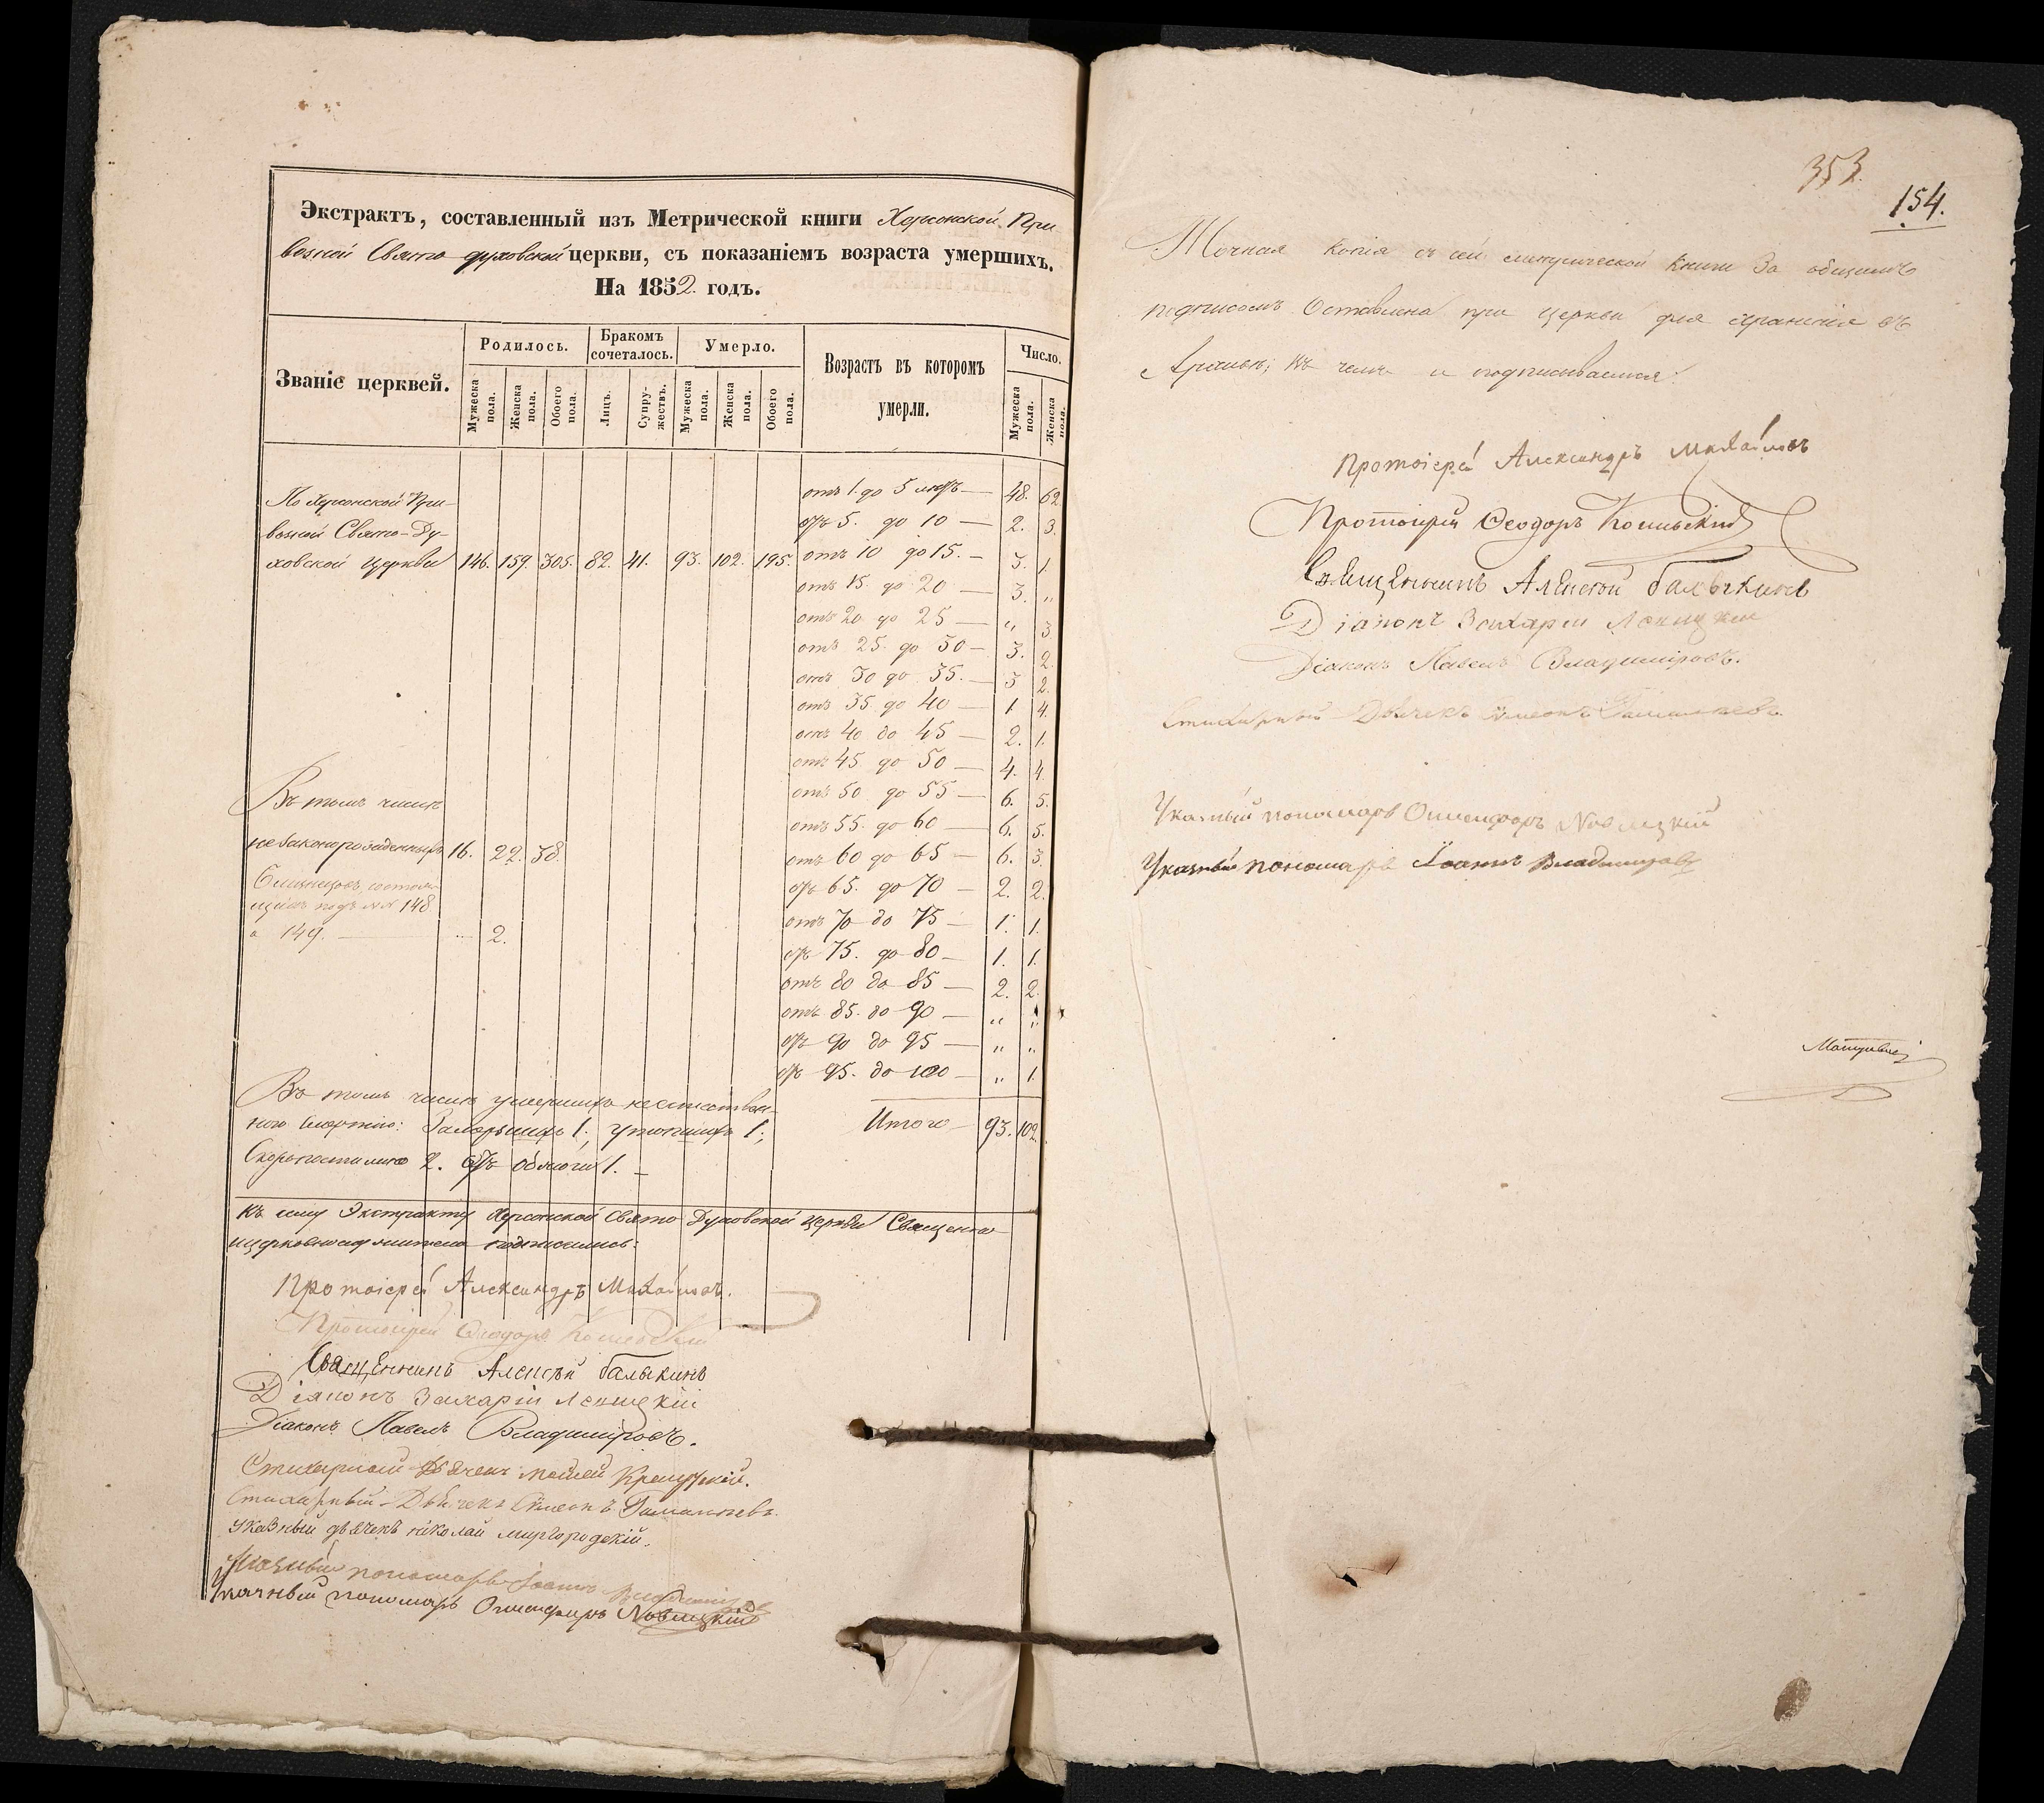 Экстрактъ, составленный изъ Метрической книги Херсонской При
возной Свято духовской церкви, съ показаніемъ возраста умершихъ.
На 1852 годъ.
Званіе церквей.
Родилось.
Бракомъ сочеталось.
Умерло.
Возрастъ въ которомъ умерли.
Число.
Мужеска пола.
Женска пола.
Обоего пола.
Лицъ.
Супружествъ.
Мужеска пола.
Женска пола.
Обоего пола.
Мужеска пола.
Женска пола.
По Херсонской При-
возной Свято-Ду-
ховской церкви 146. 159. 305. 82. 41. 93. 102. 195.
отъ 1. до 5 лѣтъ — 48. 62
отъ 5. до 10 — 2. 3.
отъ 10 до 15. — 3. 1.
отъ 15. до 20 — 3. „
отъ 20 до 25 — „ 3
отъ 25. до 30 — 3. 2.
отъ 30 до 35. — 3 2.
отъ 35. до 40 — 1 4.
отъ 40 до 45 — 2. 1.
отъ 45 до 50 — 4. 4.
отъ 50 до 55 — 6. 5.
отъ 55. до 60 — 6. 5.
отъ 60 до 65 — 6. 3.
отъ 65. до 70 — 2. 2.
отъ 70 до 75 — 1. 1.
отъ 75. до 80 — 1. 1.
отъ 80 до 85 — 2. 2.
отъ 85. до 90 — „ „
отъ 90 до 95 — „ „
отъ 95. до 100 — „ 1.
Итого — 93. 102.
Въ томъ числѣ
незаконорожденныхъ 16. 22. 38.
близнецовъ, состоя-
щихъ подъ №№ 148.
и 149. — „ 2.
Въ томъ числѣ умершихъ неестествен-
ною смертію: 1; утопшихъ 1;
Скоропостижно 2. отъ 1. —
Къ сему Экстракту Херсонской Свято Духовской церкви Священно
церковнослужители подписались:
Протоіерей Александръ Михайловъ.
Протоіерей Ѳеодоръ
Священникъ Алексѣй Балыкинъ
Діаконъ Захарій Левицкій
Діаконъ Павелъ Владиміровъ.
Стихарный Дьячекъ
Стихарный Дьячекъ Сѵмеонъ
указный дьячекъ николай миргородскій.
Указный пономарь Іоаннъ Владиміровъ
Указный пономарь Онисифоръ Новицкій
353.
154.
Точная копія съ сей метрической книги за общимъ
подписомъ Оставлена при церкви для храненія въ
Архивѣ; въ чемъ и подписываемся:
Протоіерей Александръ Михайловъ
Протоіерей Ѳеодоръ
Священникъ Алексѣй Балыкинъ
Діаконъ Захарій Левицкій
Діаконъ Павелъ Владиміровъ.
Стихарный Дьячекъ Сѵмеонъ
Указный пономарь Онисифоръ Новицкій
Указный пономарь Іоаннъ Владиміровъ